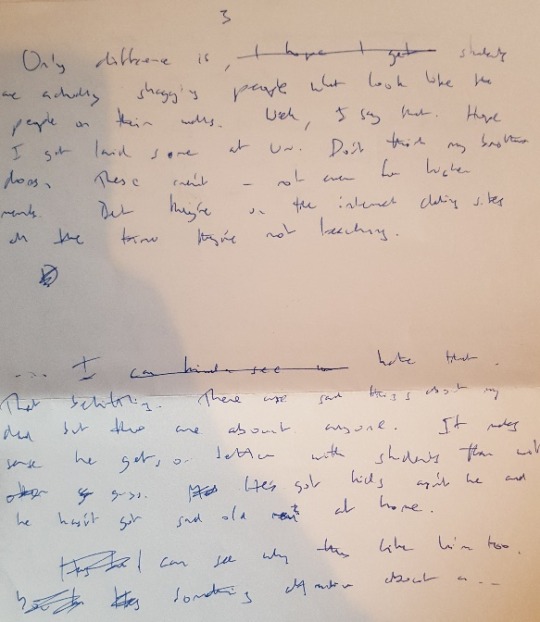 3
Only difference is, I hope I get students
are actually shagging people what look like the
people on their walls. Well, I say that. Hope
I get laid some at Uni. Don't think my brother
does. These can't - not even for higher
marks. But they're on the internet dating sites
all the time they're not teaching.
... I can kinda see hate that.
That belittling. There are sad things about my
dad but there are about anyone. It makes
sense he gets on better with students than with
guys. He's got kids ain't he and
he hasn't got sad old at home.
I can see why they like him too.
Something about